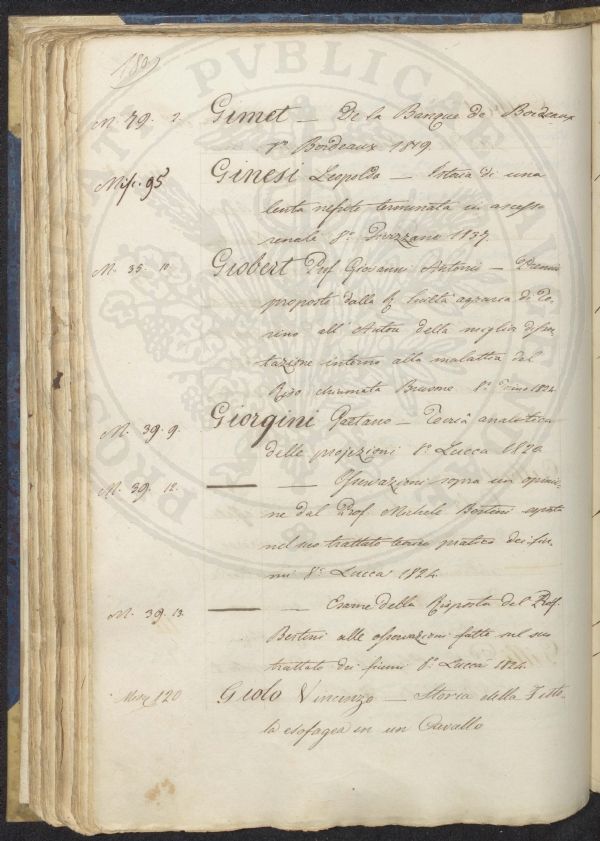 180
M. 79. 2. Gimet — De la Banque de Bordeaux
Bordeaux 1819.
Misc. 95 Ginesi Leopoldo — Istoria di una
lenta nefrite terminata in ascesso
renale 8.° 1837.
M. 35. 10. Giobert Prof. Giovanni Antonio — Premio
proposto dalla Società agraria di To-
rino all' Autore della miglior disser-
tazione intorno alla malattia del
Riso chiamata Brusone 8.° Torino 1824.
M. 39. 9. Giorgini Gaetano — Teoria analitica
delle projezioni 8.° Lucca 1820
M. 39. 12. — — Osservazioni sopra un opinio-
ne del Prof. Michele Bertini esposta
nel suo trattato teorico pratico dei fiu-
mi 8.° Lucca 1824.
M. 39. 13. — — Esame della Risposta del Prof.
Bertini alle osservazioni fatte sul suo
trattato dei fiumi 8.° Lucca 1824.
120 Giolo Vincenzo — Storia della Fisto-
la esofagea in un Cavallo
PUBLICAE